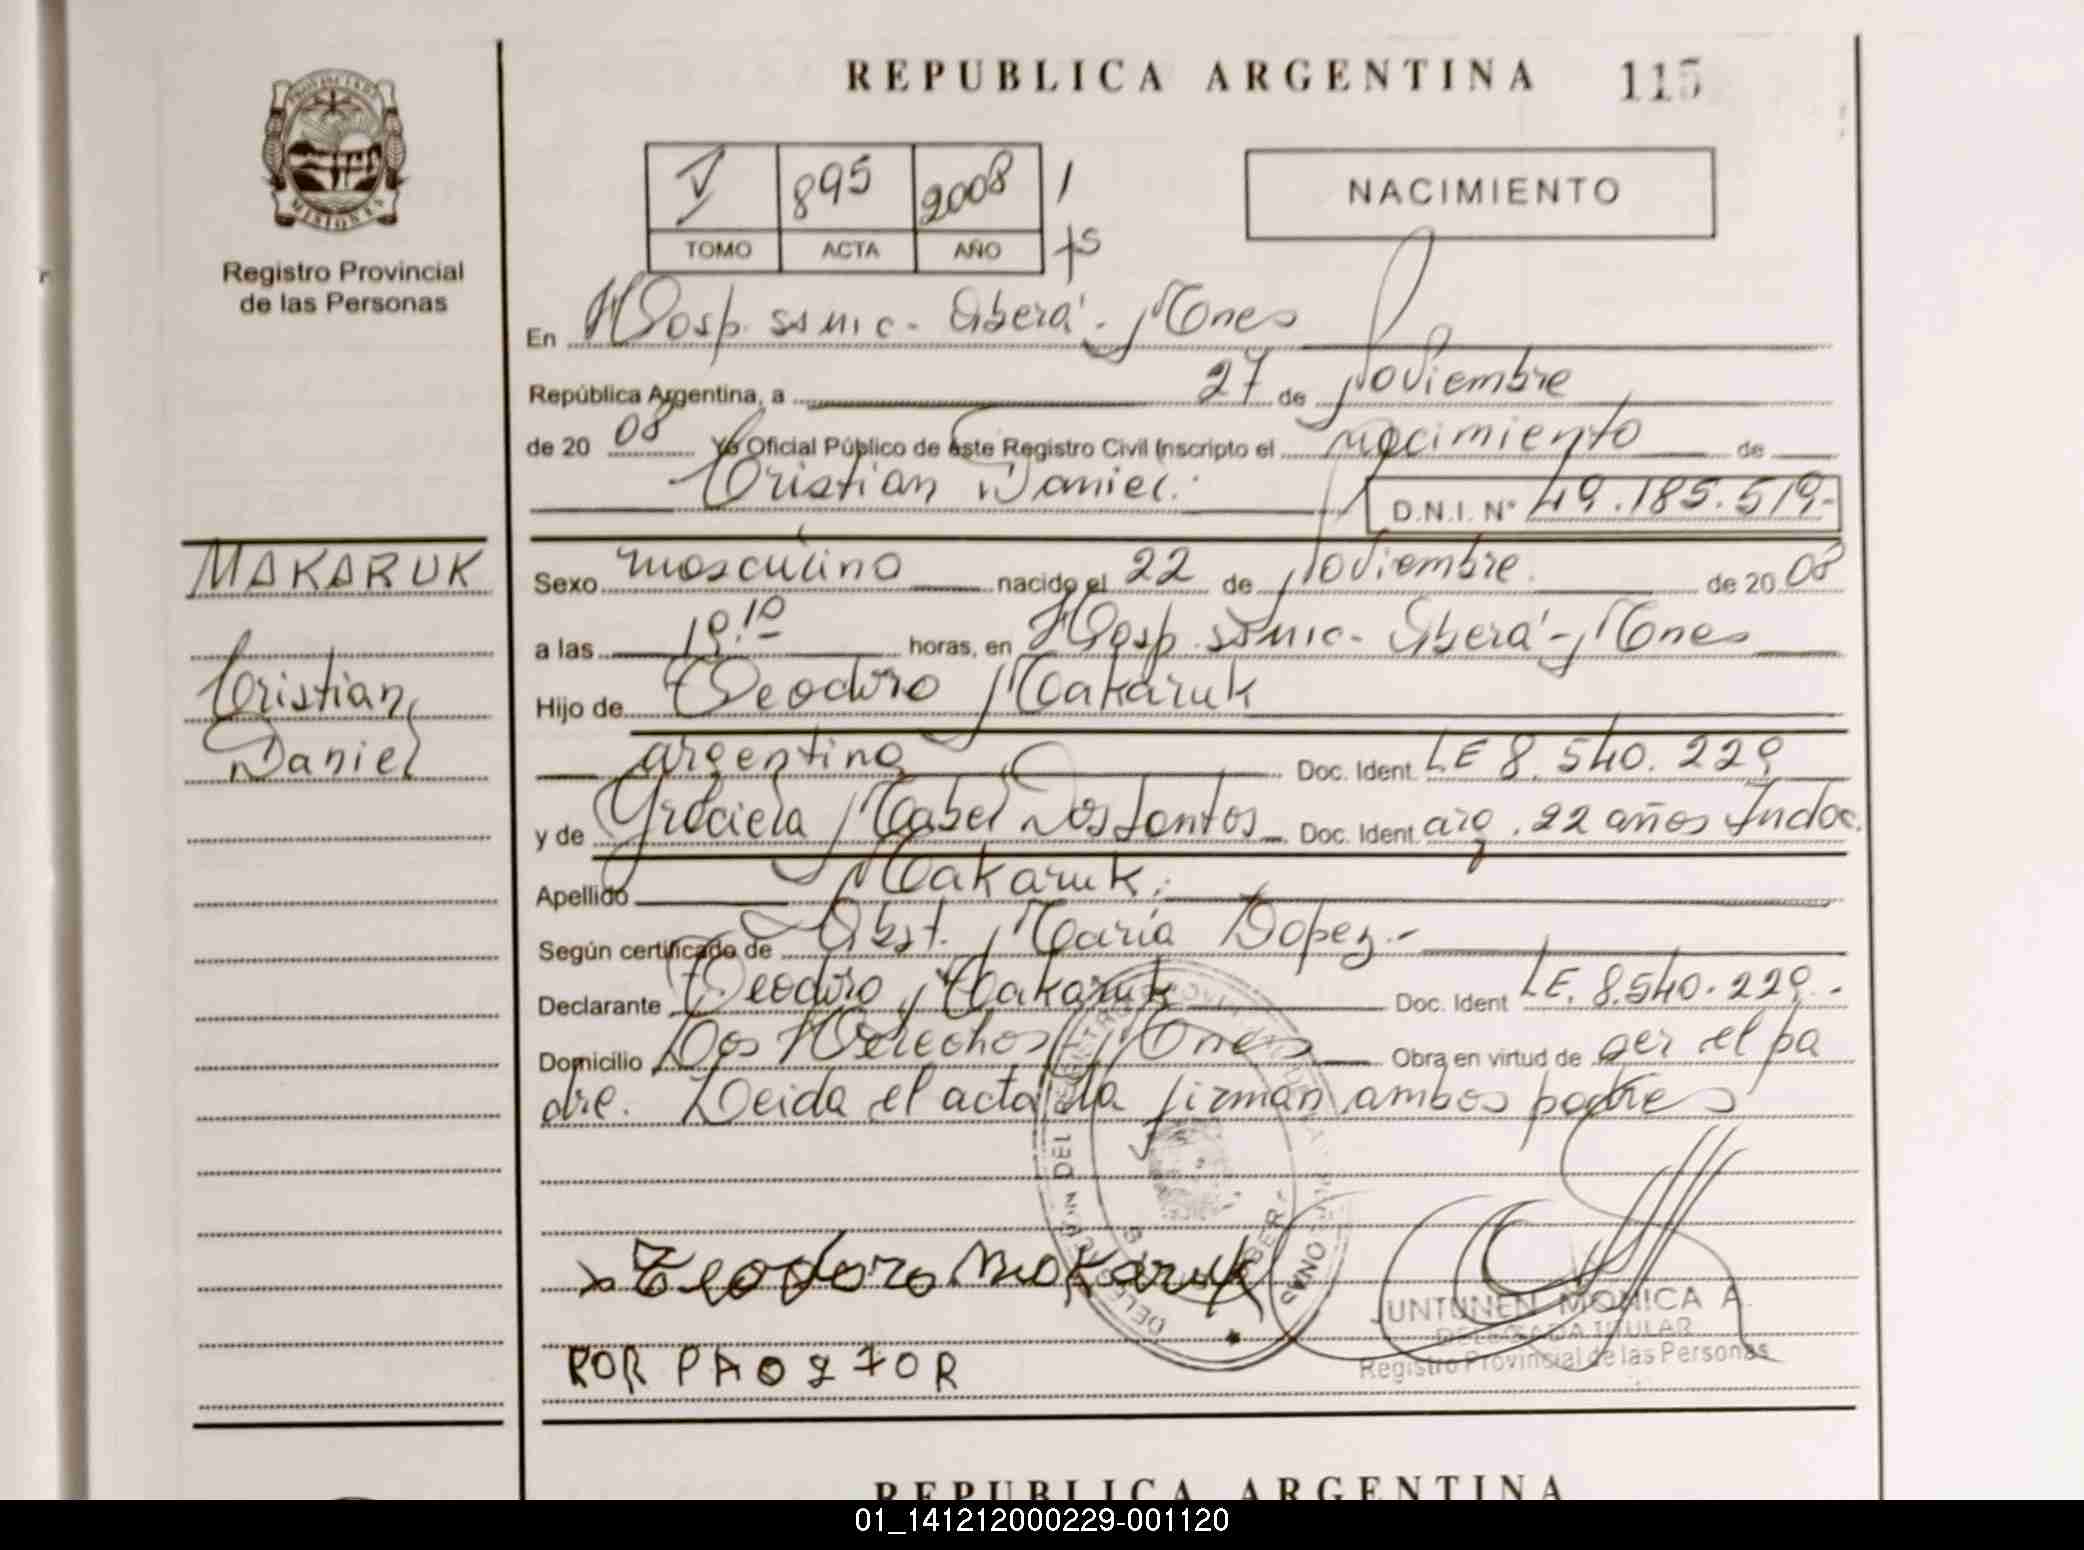 REPUBLICA ARGENTINA 115
PROVINCIA DE MISIONES
Registro Provincial
de las Personas
V 895 2008 1
TOMO ACTA AÑO fs
NACIMIENTO
En Hosp. ssmic. Oberá - Mones
República Argentina, a 27 de Noviembre
de 20 08 Yo Oficial Público de este Registro Civil Inscripto el nacimiento de
Cristian Daniel. D.N.I. Nº 49.185.519-
MAKARUK
Cristian
Daniel
Sexo masculino nacido el 22 de Noviembre de 20 08
a las 19.10 horas, en Hosp. ssmic - Oberá - Mones
Hijo de Teodoro Makaruk
argentino Doc. Ident. LE 8.540.229
y de Graciela Mabel Dos Santos Doc. Ident. arg. 22 años Indoc.
Apellido Makaruk.
Según certificado de Obst. María Lopez.-
Declarante Teodoro Makaruk Doc. Ident LE. 8.540.229.-
Domicilio Dos Herechos Mones Obra en virtud de ser el pa
dre. Leida el acta la firman ambos padres
Teodoro Makaruk
POR PROGRESOR
JUNTUNEN MONICA A.
DELEGADA TITULAR
Registro Provincial de las Personas
REPUBLICA ARGENTINA
01_141212000229-001120